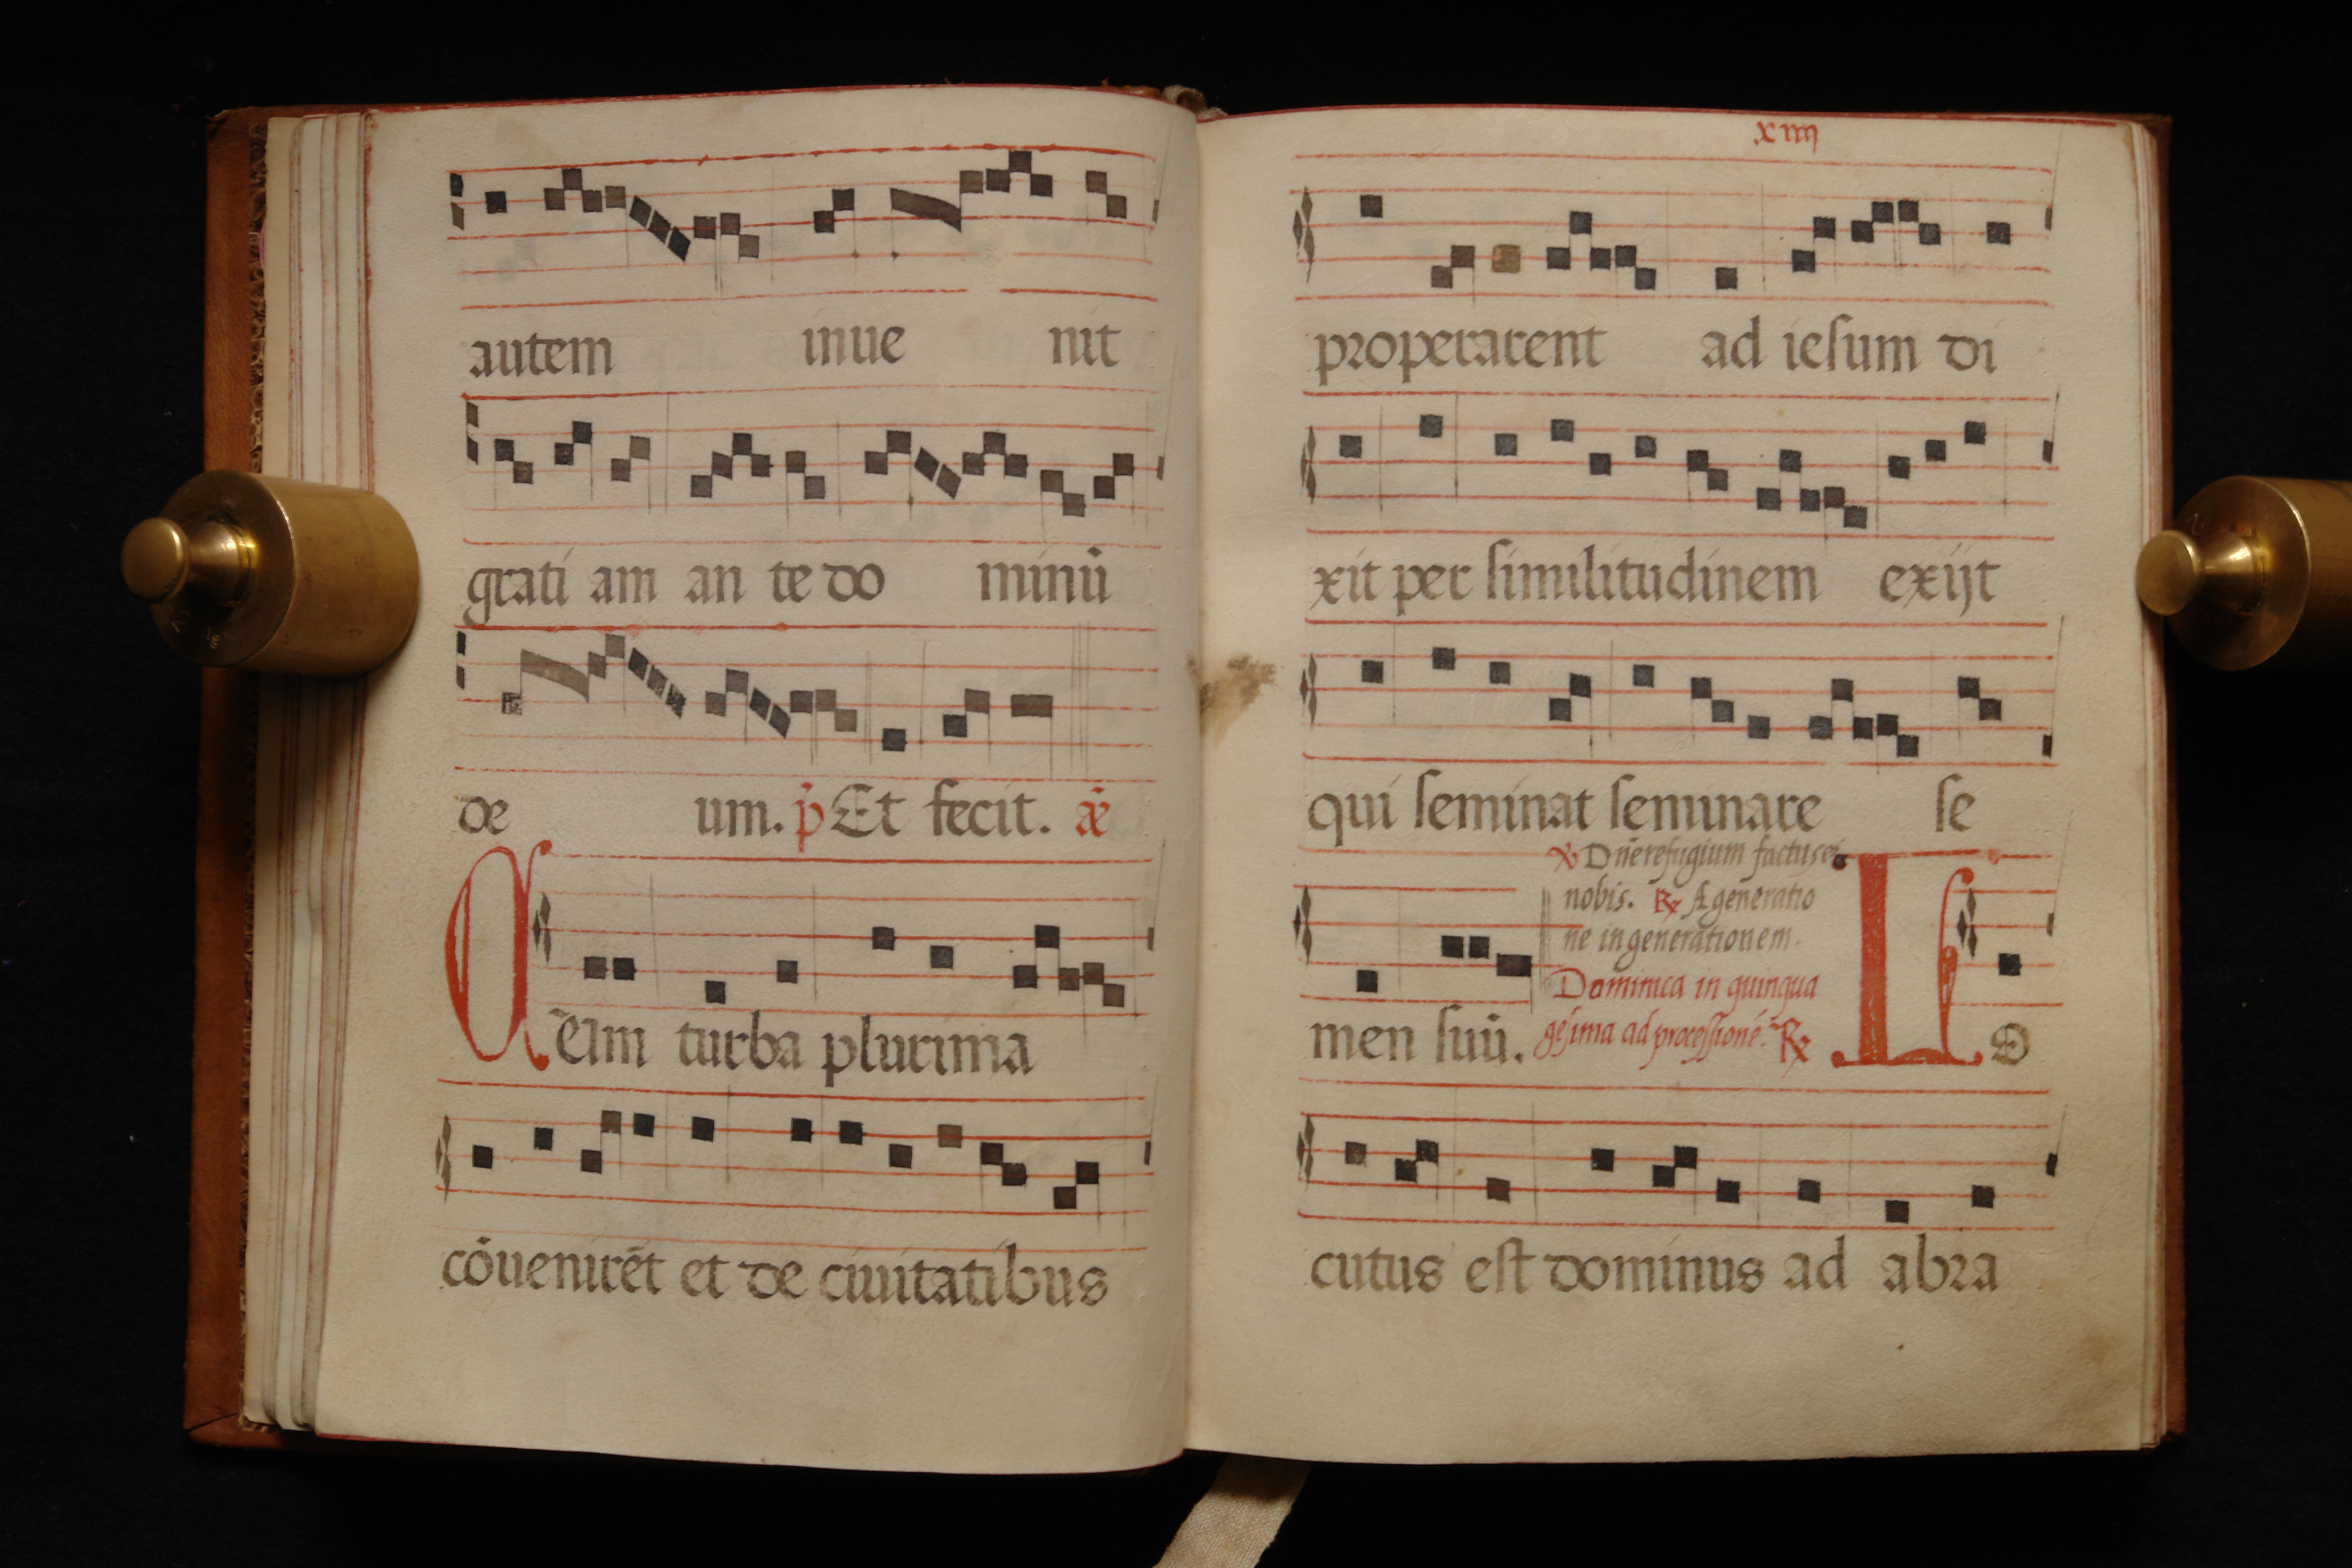 autem inue nit
grati am an te do minū
de um. p̄ Et fecit. ā̄
Q Vm turba plurima
cōuenirēt et de ciuitatibus
xiiij
properarent ad iesum di
xit per similitudinem exijt
qui seminat seminare se
℣ Dn̄e refugium factus es
nobis. ℟ A generatio
ne in generationem.
men suū.
Dominica in quinqua
gesima ad processionē. ℟
L O
cutus est dominus ad abra